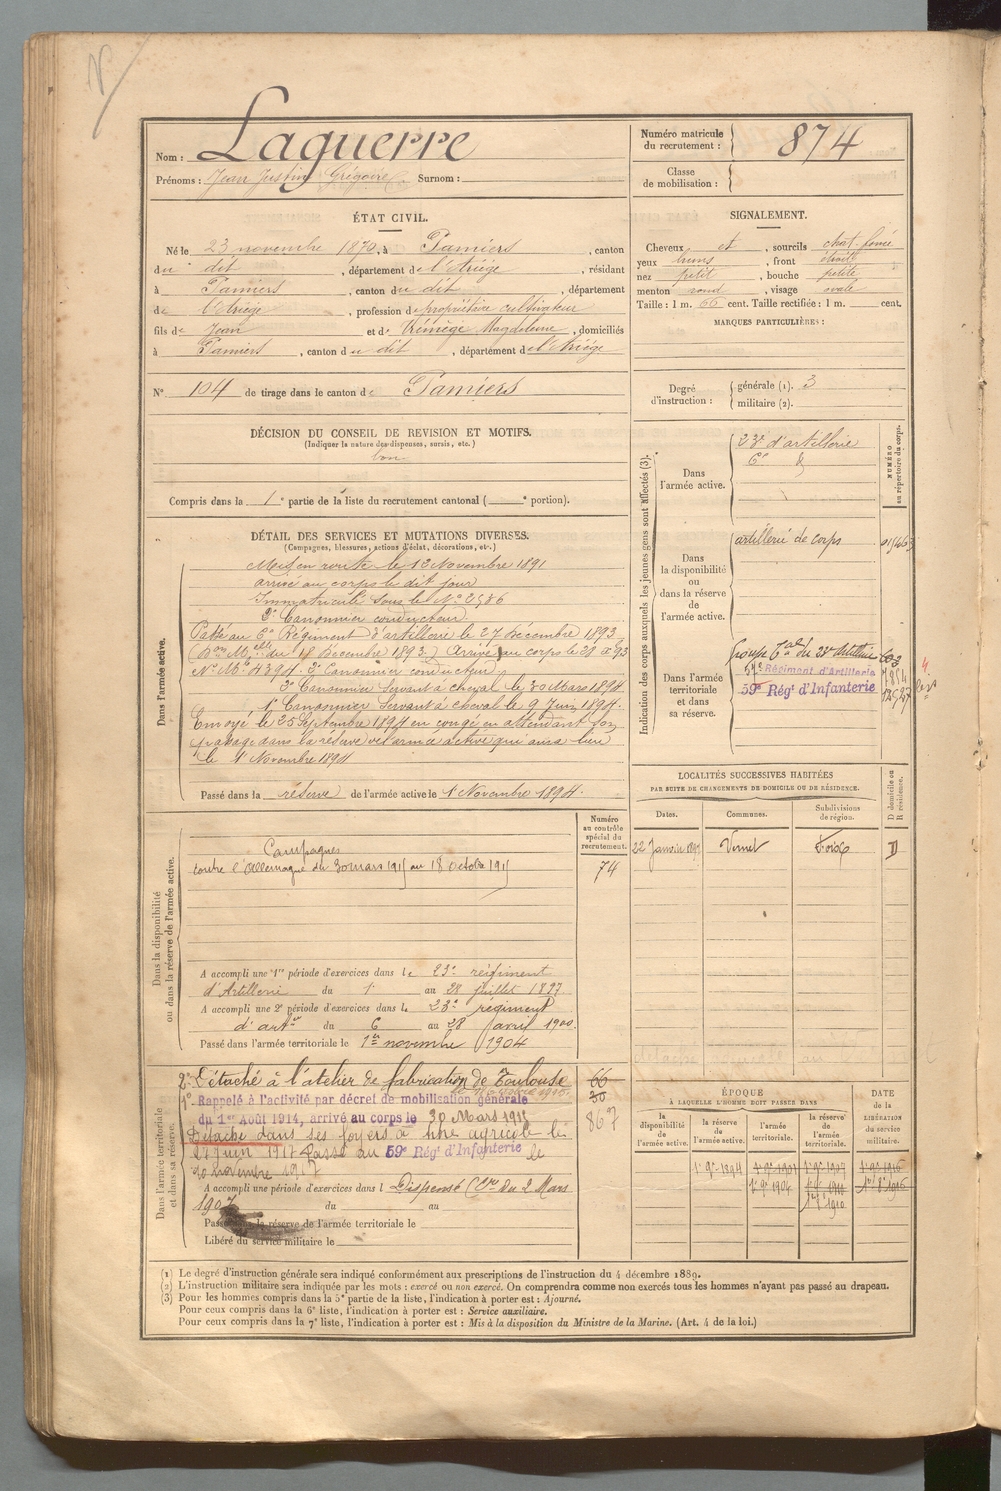 Nom : Laguerre
Prénoms : Jean Justin Grégoire Surnom :
Numéro matricule du recrutement : 874
Classe de mobilisation :
ÉTAT CIVIL.
Né le 23 novembre 1870, à Pamiers, canton
du dit, département de l'Ariège, résidant
à Pamiers, canton du dit, département
de l'Ariège, profession de propriétaire cultivateur
fils de Jean et de Magdeleine, domiciliés
à Pamiers, canton du dit, département de l'Ariège
N° 104 de tirage dans le canton de Pamiers
SIGNALEMENT.
Cheveux et, sourcils chat. foncé
yeux, front étroit
nez petit, bouche petite
menton rond, visage ovale
Taille : 1 m. 66 cent. Taille rectifiée : 1 m. cent.
MARQUES PARTICULIÈRES :
Degré d'instruction : générale (1). 3
militaire (2).
DÉCISION DU CONSEIL DE REVISION ET MOTIFS.
(Indiquer la nature des dispenses, sursis, etc.)
bon
Compris dans la 1e partie de la liste du recrutement cantonal ( e portion).
DÉTAIL DES SERVICES ET MUTATIONS DIVERSES.
(Campagnes, blessures, actions d'éclat, décorations, etc.)
Dans l'armée active.
Mis en route le 12 Novembre 1891
arrivé au corps le dit jour
Immatriculé sous le N° 2586
2e Canonnier conducteur
Passé au 6e Régiment d'artillerie le 27 Décembre 1893
(Don Mlle du 18 Décembre 1893) Arrivé au corps le 28 dbre 93
N° Mle 4394. 2e Canonnier conducteur
2e Canonnier Servant à cheval le 30 Mars 1894.
1er Canonnier Servant à cheval le 9 Juin 1894.
Envoyé le 25 Septembre 1894 en congé en attendant son
passage dans la réserve de l'armée active qui aura lieu
le 1 Novembre 1894
Passé dans la réserve de l'armée active le 1 Novembre 1894.
Indication des corps auxquels les jeunes gens sont affectés (3).
NUMÉRO au répertoire du corps.
Dans l'armée active.
23e d'artillerie
6e d°
Dans la disponibilité ou dans la réserve de l'armée active.
artillerie de corps
Dans l'armée territoriale et dans sa réserve.
groupe Tal du 23e Artillerie 602
57e Régiment d'Artillerie 7854
59e Régt d'Infanterie
LOCALITÉS SUCCESSIVES HABITÉES
PAR SUITE DE CHANGEMENTS DE DOMICILE OU DE RÉSIDENCE.
Dates. Communes. Subdivisions de région. D domicile ou R résidence.
22 Janvier Vernet Foix D
Dans la disponibilité ou dans la réserve de l'armée active.
Numéro au contrôle spécial du recrutement.
74
Campagnes
contre l'Allemagne du 30 mars 1915 au 18 octobre 1915
A accompli une 1re période d'exercices dans le 23e régiment
d'Artillerie du 1er au 28 juillet 1897
A accompli une 2e période d'exercices dans le 23e régiment
d'artie du 6 au 28 avril 1900
Passé dans l'armée territoriale le 1er novembre 1904
Dans l'armée territoriale et dans sa réserve.
2° Détaché à l'atelier de fabrication de Toulouse
1° Rappelé à l'activité par décret de mobilisation générale
du 1er Août 1914, arrivé au corps le 30 Mars 1915
Détaché dans ses foyers à titre agricole le
Juin 1917 Passé au 59e Régt d'Infanterie le
10 novembre 1917
A accompli une période d'exercices dans l Dispensé Cire du 2 Mars
1907 du au
Passé dans la réserve de l'armée territoriale le
Libéré du service militaire le
66
867
ÉPOQUE
À LAQUELLE L'HOMME DOIT PASSER DANS
la disponibilité de l'armée active. la réserve de l'armée active. l'armée territoriale. la réserve de l'armée territoriale. DATE de la LIBÉRATION du service militaire.
1er 9bre 1894
1er 9bre 1904
(1) Le degré d'instruction générale sera indiqué conformément aux prescriptions de l'instruction du 4 décembre 1889.
(2) L'instruction militaire sera indiquée par les mots : exercé ou non exercé. On comprendra comme non exercés tous les hommes n'ayant pas passé au drapeau.
(3) Pour les hommes compris dans la 5e partie de la liste, l'indication à porter est : Ajourné.
Pour ceux compris dans la 6e liste, l'indication à porter est : Service auxiliaire.
Pour ceux compris dans la 7e liste, l'indication à porter est : Mis à la disposition du Ministre de la Marine. (Art. 4 de la loi.)